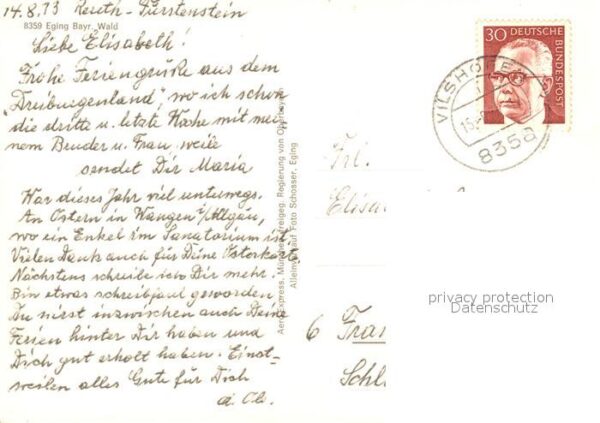 14.8.73 Reuth-Fürstenstein
8359 Eging Bayr. Wald
Liebe Elisabeth!
Frohe Feriengrüße aus dem
"Dreiburgenland", wo ich schon
die dritte u. letzte Woche mit mei
nem Bruder u. Frau weile
sendet Dir Maria
War dieses Jahr viel unterwegs.
An Ostern in Wangen i/Allgäu,
wo ein Enkel im Sanatorium ist
Vielen Dank auch für Deine Osterkarte
Nächstens schreibe ich Dir mehr.
Bin etwas schreibfaul geworden
Du wirst inzwischen auch Deine
Ferien hinter Dir haben und
Dich gut erholt haben. Einst-
weilen alles Gute für Dich
Aero Express, München Freigeg. Regierung von
Alleinverkauf Foto Schosser, Eging
30 DEUTSCHE
BUNDESPOST
VILSHOFEN
15.
8358
Frl.
6
privacy protection
Datenschutz